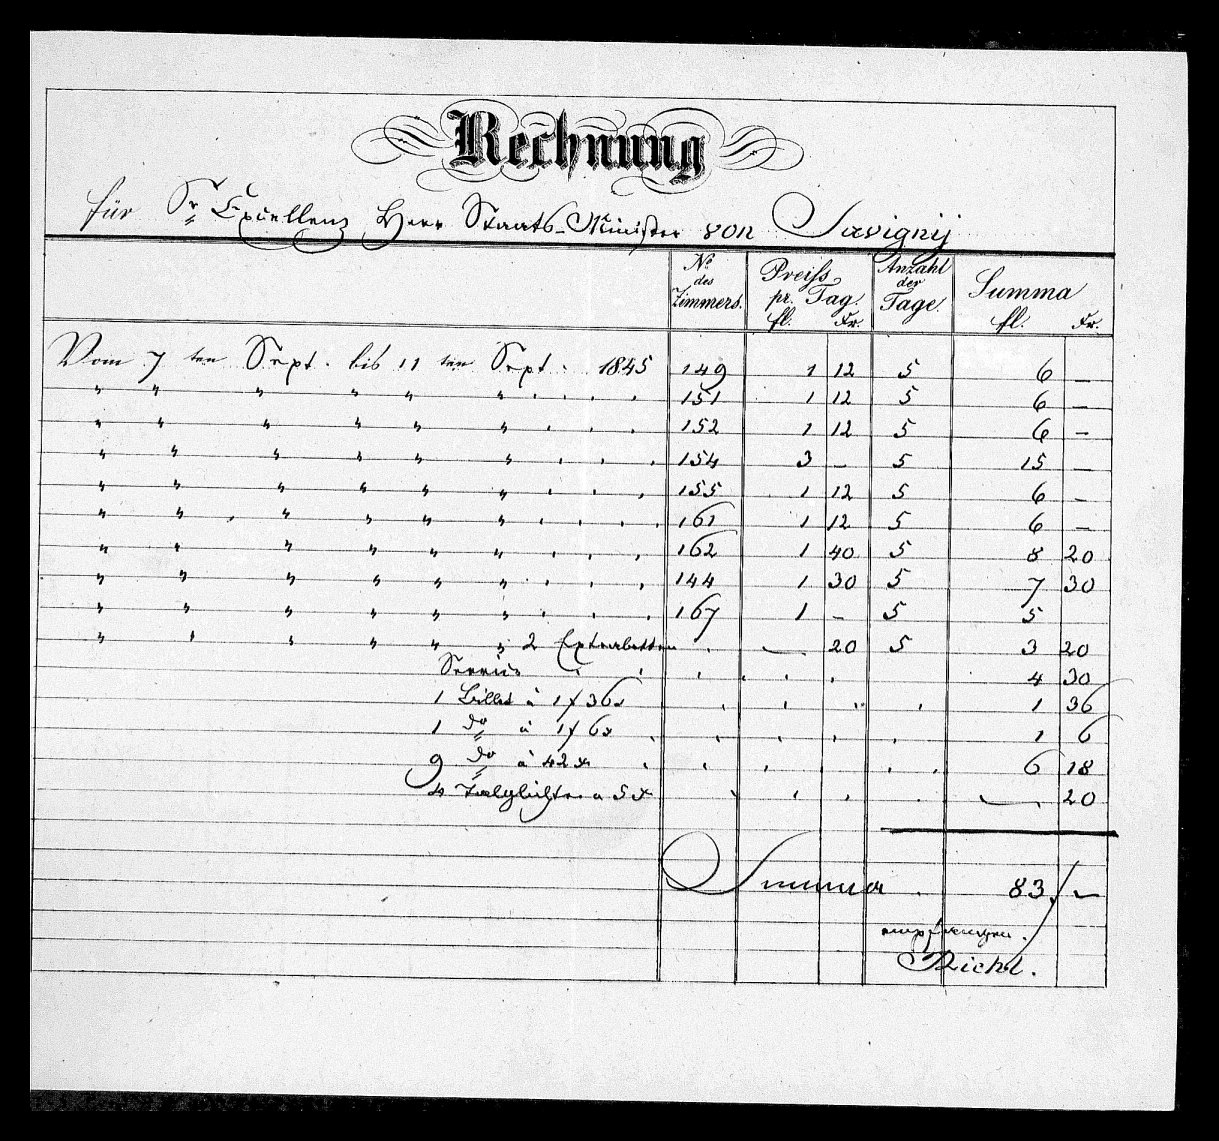 Rechnung
für Sr Excellenz Herr Staats-Minister von Savignij
No des Zimmers. Preiss pr. Tag. fl. Xr. Anzahl der Tage. Summa fl. Xr.
Vom 7 ten Sept. bis 11 ten Sept. 1845 149 1 12 5 6 –
" " " " " " 151 1 12 5 6 –
" " " " " " 152 1 12 5 6 –
" " " " " " 154 3 – 5 15 –
" " " " " " 155 1 12 5 6 –
" " " " " " 161 1 12 5 6 –
" " " " " " 162 1 40 5 8 20
" " " " " " 144 1 30 5 7 30
" " " " " " 167 1 – 5 5
" " " " " " 2 Extrabetten — 20 5 3 20
Servis 4 30
1 Billet à 1f 36x 1 36
1 do à 1f 6x 1 6
9 do à 42x 6 18
4 Talglichter a 5x — 20
Summa 83 –
empfangen.